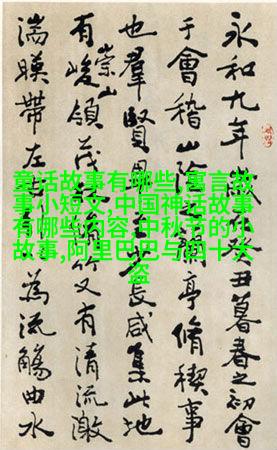 永和九年丑暮春之初會
于會稽山陰亭脩稧事
也羣賢長咸集此地
有崇山峻領茂竹又有清流激
湍暎帶左為流觴曲水
童话故事有哪些,寓言故
事小短文,中国神话故事
有哪些内容,中秋节的小
故事,阿里巴巴与四十大
盗